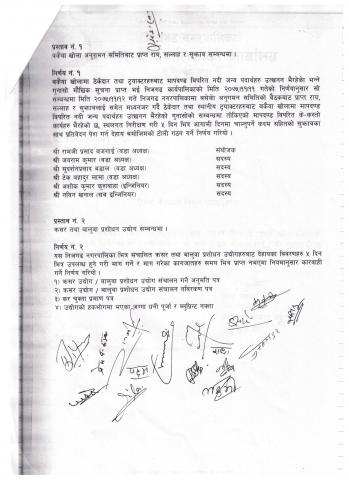 प्रस्ताव नं. १
बकैया खोला अनुगमन समितिबाट प्राप्त राय, सल्लाह र सुझाव सम्बन्धमा ।
निर्णय नं. १
बकैया खोलामा ठेकेदार तथा ट्र्याक्टरहरुबाट मापदण्ड विपरित नदी जन्य पदार्थहरु उत्खनन भैरहेको भन्ने
गुनासो मौखिक सूचना प्राप्त भई निजगढ कार्यपालिकाको मिति २०७५।११।२१ गतेको निर्णयानुसार सो
सम्बन्धमा मिति २०७५।११।२२ गते निजगढ नगरपालिकामा बसेको अनुगमन समितिको बैठकबाट प्राप्त राय,
सल्लाह र सुझावलाई समेत मध्यनजर गर्दै ठेकेदार तथा स्थानीय ट्र्याक्टरहरुबाट बकैया खोलामा मापदण्ड
विपरित नदी जन्य पदार्थहरु उत्खनन भैरहेको गुनासोको सम्बन्धमा तोकिएको मापदण्ड विपरित के-कस्तो
कार्यहरु भैरहेको छ, स्थलगत निरीक्षण गरी ५ दिन भित्र आगामी दिनमा चाल्नुपर्ने कदम सहितको सुझावका
साथ प्रतिवेदन पेश गर्न देहाय बमोजिमको टोली गठन गर्ने निर्णय गरियो ।
श्री रामजी प्रसाद बजगाई (वडा अध्यक्ष) संयोजक
श्री जयराम कुमार (वडा अध्यक्ष) सदस्य
श्री सुदर्शनप्रसाद दाहाल (वडा अध्यक्ष) सदस्य
श्री टेक बहादुर लामा (वडा अध्यक्ष) सदस्य
श्री अशोक कुमार कुशवाहा (इन्जिनियर) सदस्य
श्री नविन खनाल (सब इन्जिनियर) सदस्य
प्रस्ताव नं. २
कसर तथा बालुवा प्रशोधन उद्योग सम्बन्धमा ।
निर्णय नं. २
यस निजगढ नगरपालिका भित्र संचालित कसर तथा बालुवा प्रशोधन उद्योगहरुबाट देहायका विवरणहरु ५ दिन
भित्र उपलब्ध हुने गरी माग गर्ने र माग गरेका कागजातहरु समय भित्र प्राप्त नभएमा नियमानुसार कारवाही
गर्ने निर्णय गरियो ।
१) कसर उद्योग / बालुवा प्रशोधन उद्योग संचालन गर्ने अनुमति पत्र
२) कसर उद्योग / बालुवा प्रशोधन उद्योग संचालन नविकरण पत्र
३) कर चुक्ता प्रमाण पत्र
४) उद्योगको हकभोगमा भएका जग्गा धनी पूर्जा र ब्लुप्रिन्ट नक्सा